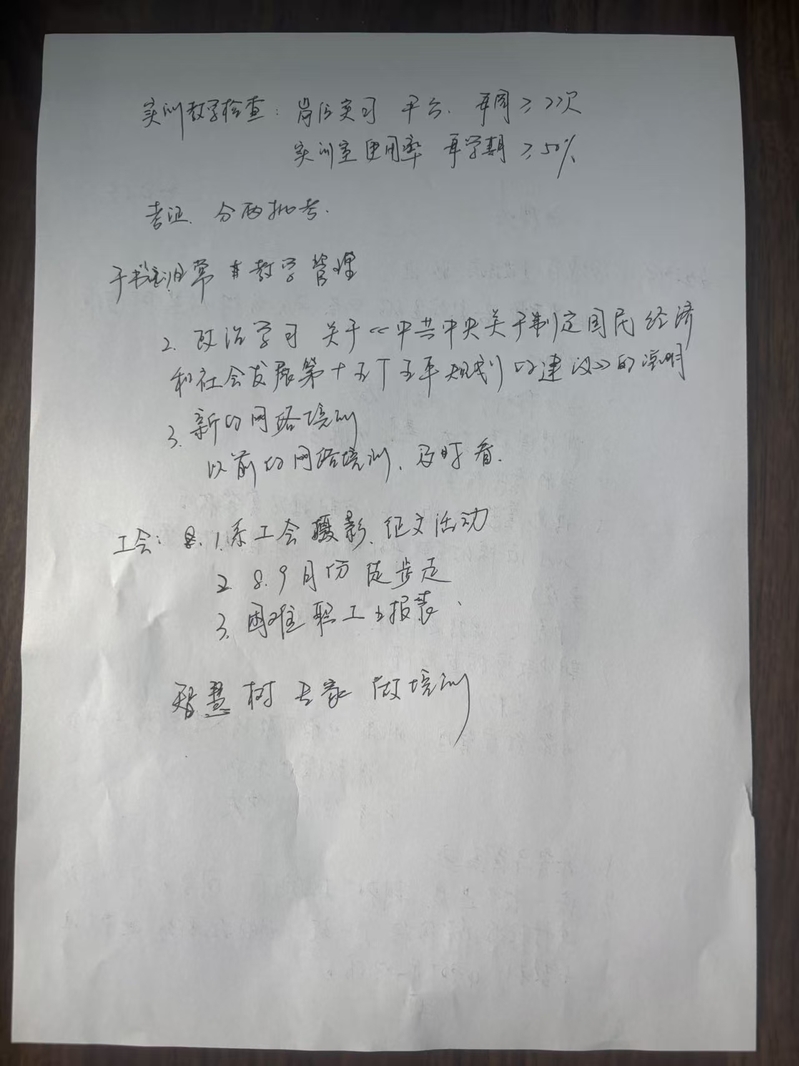 实训教学检查: 岗位实习 平台. 每周≥2次
实训室使用率 每学期≥50%
考证. 分两批考.
于书记: 日常 教学管理
2. 政治学习 关于《中共中央关于制定国民经济
和社会发展第十五个五年规划的建议》的说明
3. 新的网络培训
以前的网络培训, 及时看.
工会: 1. 系工会摄影. 征文活动
2. 8.9月份徒步走
3. 困难职工 报表.
智慧树 专家 做培训